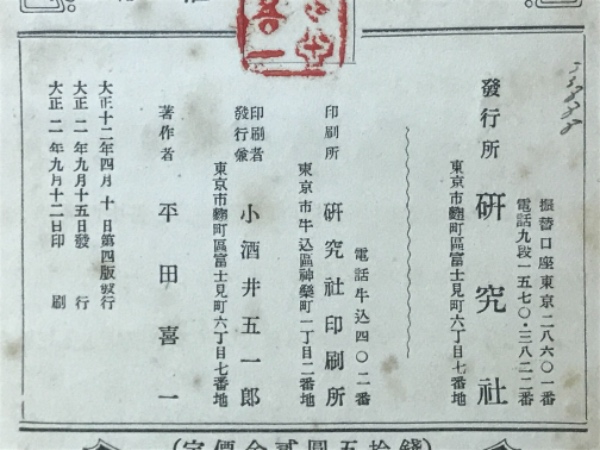 振替口座東京二八六〇一番
電話九段一五七〇・三八二二番
發行所 研究社
東京市麴町區富士見町六丁目七番地
電話牛込四〇二番
印刷所 研究社印刷所
東京市牛込區神樂町一丁目二番地
印刷者
發行兼
小酒井五一郎
東京市麴町區富士見町六丁目七番地
著作者 平田喜一
大正十二年四月十日第四版發行
大正二年九月十五日發行
大正二年九月十二日印刷
(定價金貳圓五拾錢)